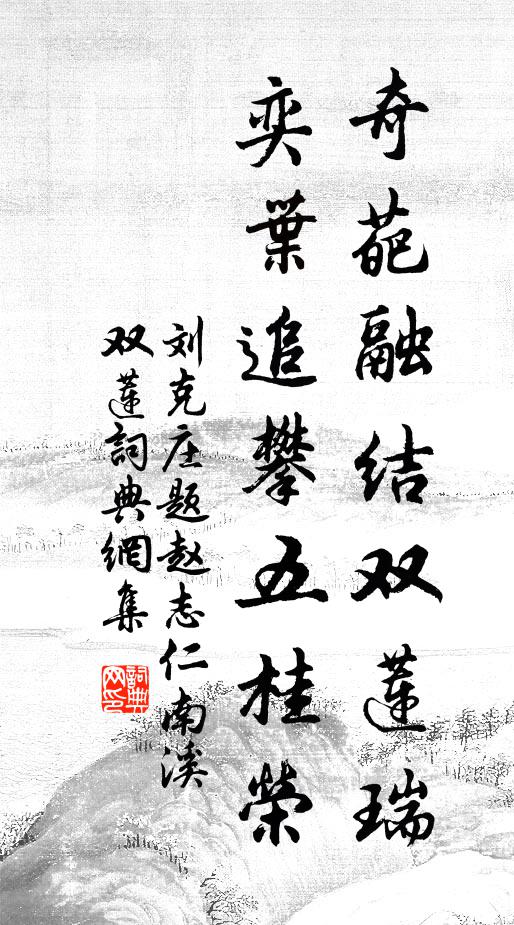 奇葩融结双莲瑞
奕葉追攀五桂榮
刘克庄题赵志仁南溪
双莲詞典網集
詞典网印